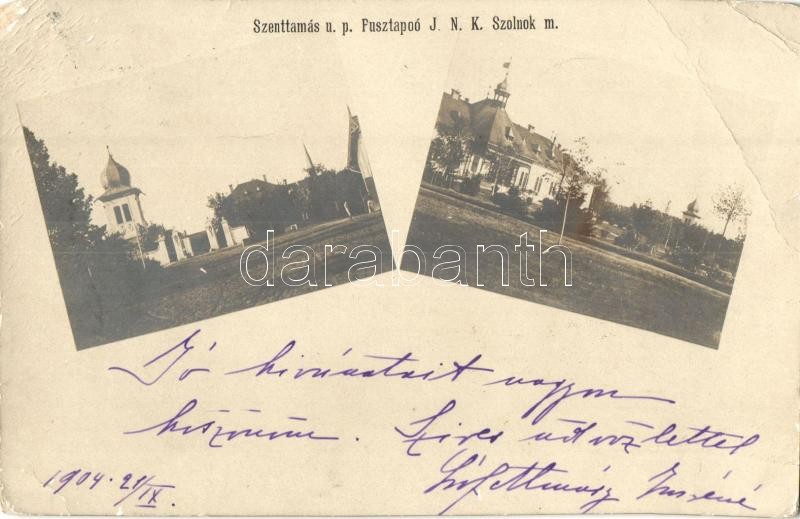 Szenttamás u. p. Pusztapoó J. N. K. Szolnok m.
darabanth.com
Jó kivánatait nagyon
köszönöm. Szives üdvözlettel
1904. 21/IX.